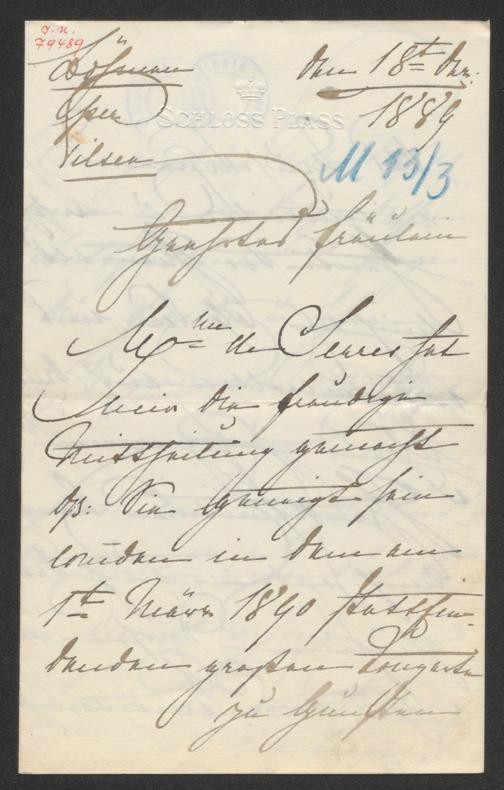 J. N.
79489
Böhmen
Pilsen
den 18t Dez:
1889
SCHLOSS PLASS
M 13/3
Geehrtes Fräulein
Mme de Serres hat
mir die freudige
Mittheilung gemacht
dß: Sie geneigt sein
würden in dem am
1t März 1890 stattfin-
denden großen Conzerte
zu Gunsten